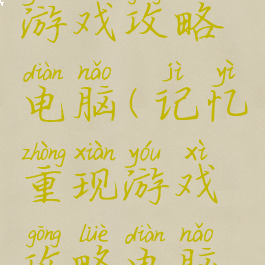 游戏攻略
diàn nǎo jì yì
电脑(记忆
zhòng xiàn yóu xì
重现游戏
gōng lüè diàn nǎo
攻略电脑